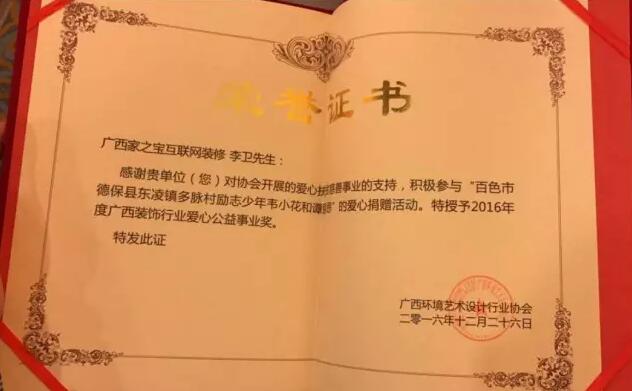 荣誉证书
广西家之宝互联网装修 李卫先生：
感谢贵单位（您）对协会开展的爱心慈善事业的支持，积极参与“百色市
德保县东凌镇多脉村励志少年韦小花和谭”的爱心捐赠活动。特授予2016年
度广西装饰行业爱心公益事业奖。
特发此证
广西环境艺术设计行业协会
二零一六年十二月二十六日